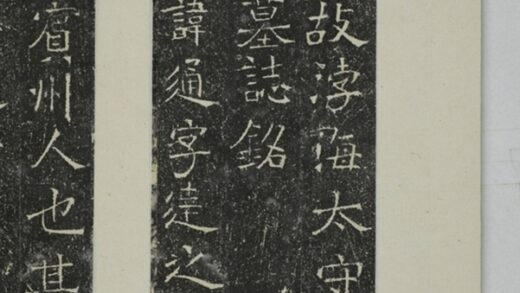 故浡海太守
墓誌銘
諱通字達之
賓州人也其